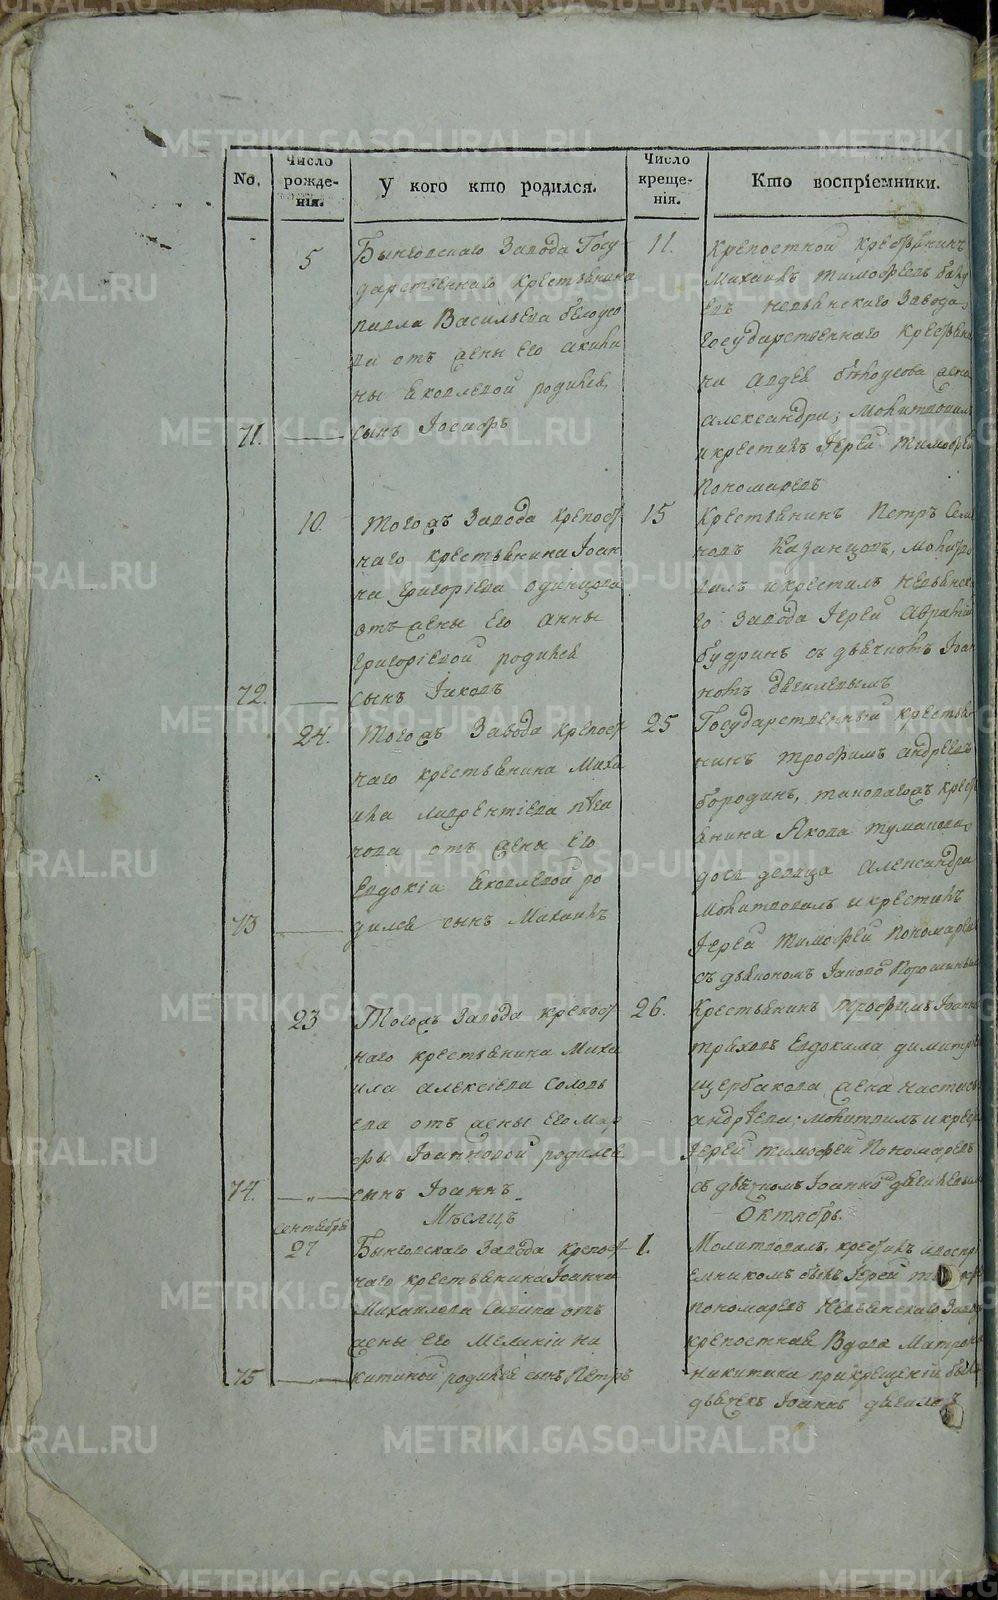 No.
Число рожде-нія.
У кого кто родился.
Число креще-нія.
Кто воспріемники.
5
Быньговскаго Завода Госу
дарственнаго крестьянина
павла Васильева белоусо
ва отъ жены его акили
ны Яковлевой родился
71. сынъ Іосифъ
11. Крепостной крестьянинъ
Михаилъ тимофеевъ
невьянскаго Завода
Государственнаго крестьяни
на авдея белоусова жена
александра; Молитвовалъ
и крестилъ Іерей тимофей
Пономаревъ
10 Тогожъ Завода крепост
наго крестьянина Іоан
на григоріева одинцова
отъ жены его анны
григоріевой родился
72. сынъ Іаковъ
15 Крестьянинъ Петръ Семе
новъ Казанцовъ, молитво
валъ и крестилъ невьянска
го Завода Іерей
будринъ съ дьячкомъ Іоан
номъ дягилевымъ
24. Тогожъ Завода крепост
наго крестьянина Миха
ила лаврентіева
отъ жены его
Евдокіи Яковлевой ро
73 дился сынъ Михаилъ
25 Государственный крестья
нинъ трофимъ андреевъ
бородинъ, таковагожъ крест
янина Якова туманова
дочь девица александра
Молитвовалъ и крестилъ
Іерей тимофей Пономаревъ
съ дьякономъ
23 Тогожъ Завода крепост
наго крестьянина Миха
ила алексіева Соловь
ева отъ жены его мар
фы Іоанновой родился
74. сынъ Іоаннъ
26. Крестьянинъ трофимъ Іоанновъ
Евдокима димитріева
щербакова жена настасья
андреева; молитвилъ и крест
Іерей тимофей Пономаревъ
съ дьячкомъ Іоанномъ дягилевымъ
Месяцъ Октябрь.
сентября
27 Быньговскаго Завода крепост
наго крестьянина Іоанна
Михаилова Савина отъ
жены его Меланіи ни
75 китиной родился сынъ Петръ
1. Молитвовалъ, крестилъ и воспрі
емникомъ былъ Іерей
пономаревъ невьянскаго Завода
крепостная Вдова Матрона
никитина при крещеніи былъ
дьячекъ Іоаннъ дягилевъ
METRIKI.GASO-URAL.RU